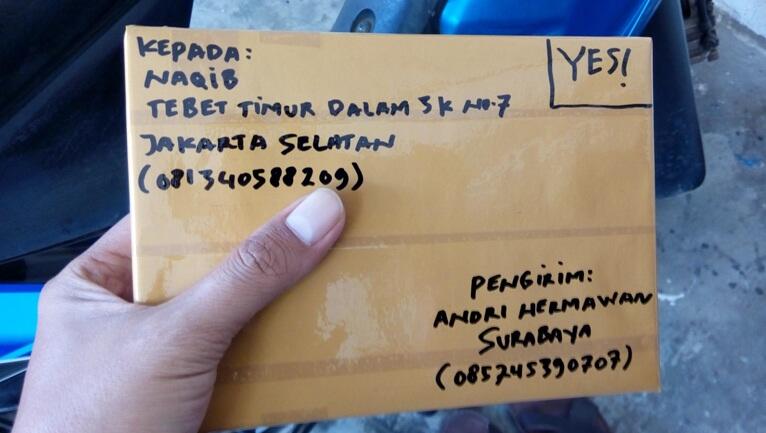 KEPADA:
NAQIB
TEBET TIMUR DALAM 3K NO.7
JAKARTA SELATAN
(081340588209)
YES!
PENGIRIM:
ANDRI HERMAWAN
SURABAYA
(085245390707)